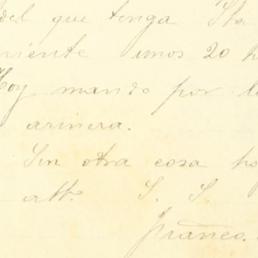 del que tenga Sta
niente unos 20 k
Hoy mando por l
arinera.
Sin otra cosa ho
atto S. S.
franco.